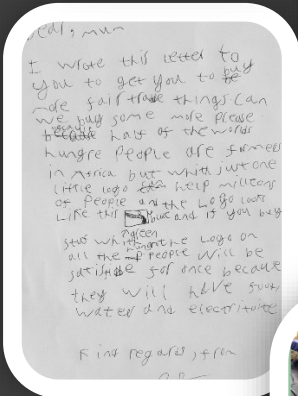 Dear, mum
I wrote this letter to
you to get you to buy
more fair trade things can
we buy some more please
because half of the worlds
hungre people are farmers
in Africa but whith just one
little logo can help millions
of people and the logo looks
like this and if you buy
stuf whith the logo on
all the people will be
satisfide for once because
they will have food,
water and electrisite
Kind regards, from